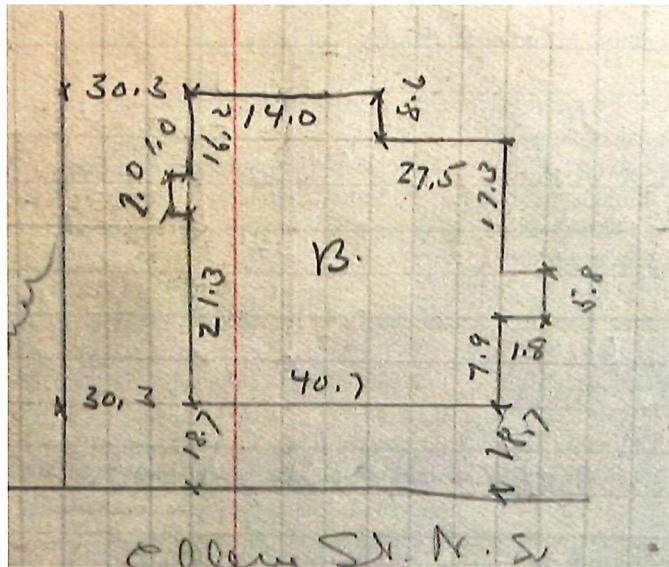 30.3
14.0
8.6
1.0
16.2
2.0
27.5
17.3
B.
21.3
5.8
7.9
1.8
40.7
30.3
18.7
18.7
St. N.S.